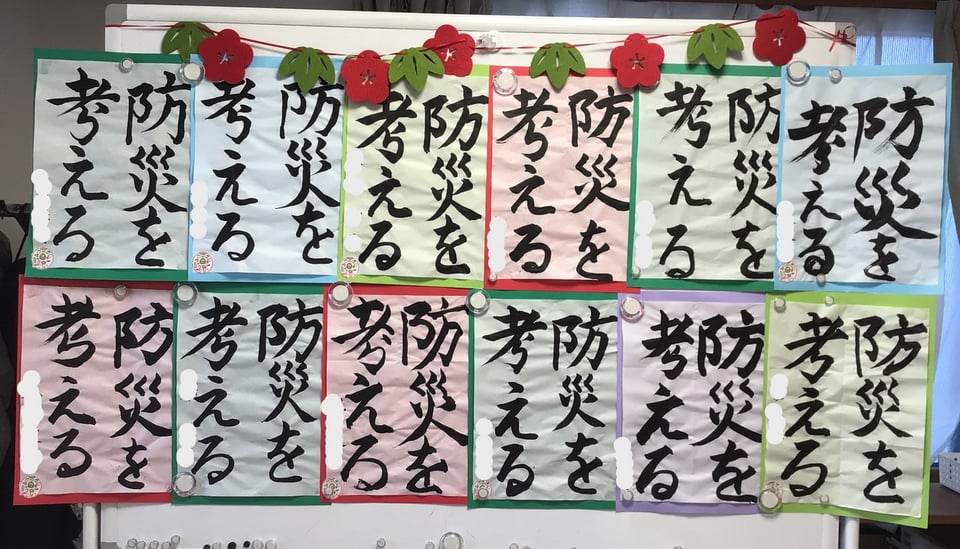 防災を
考える
防災を
考える
防災を
考える
防災を
考える
防災を
考える
防災を
考える
防災を
考える
防災を
考える
防災を
考える
防災を
考える
防災を
考える
防災を
考える